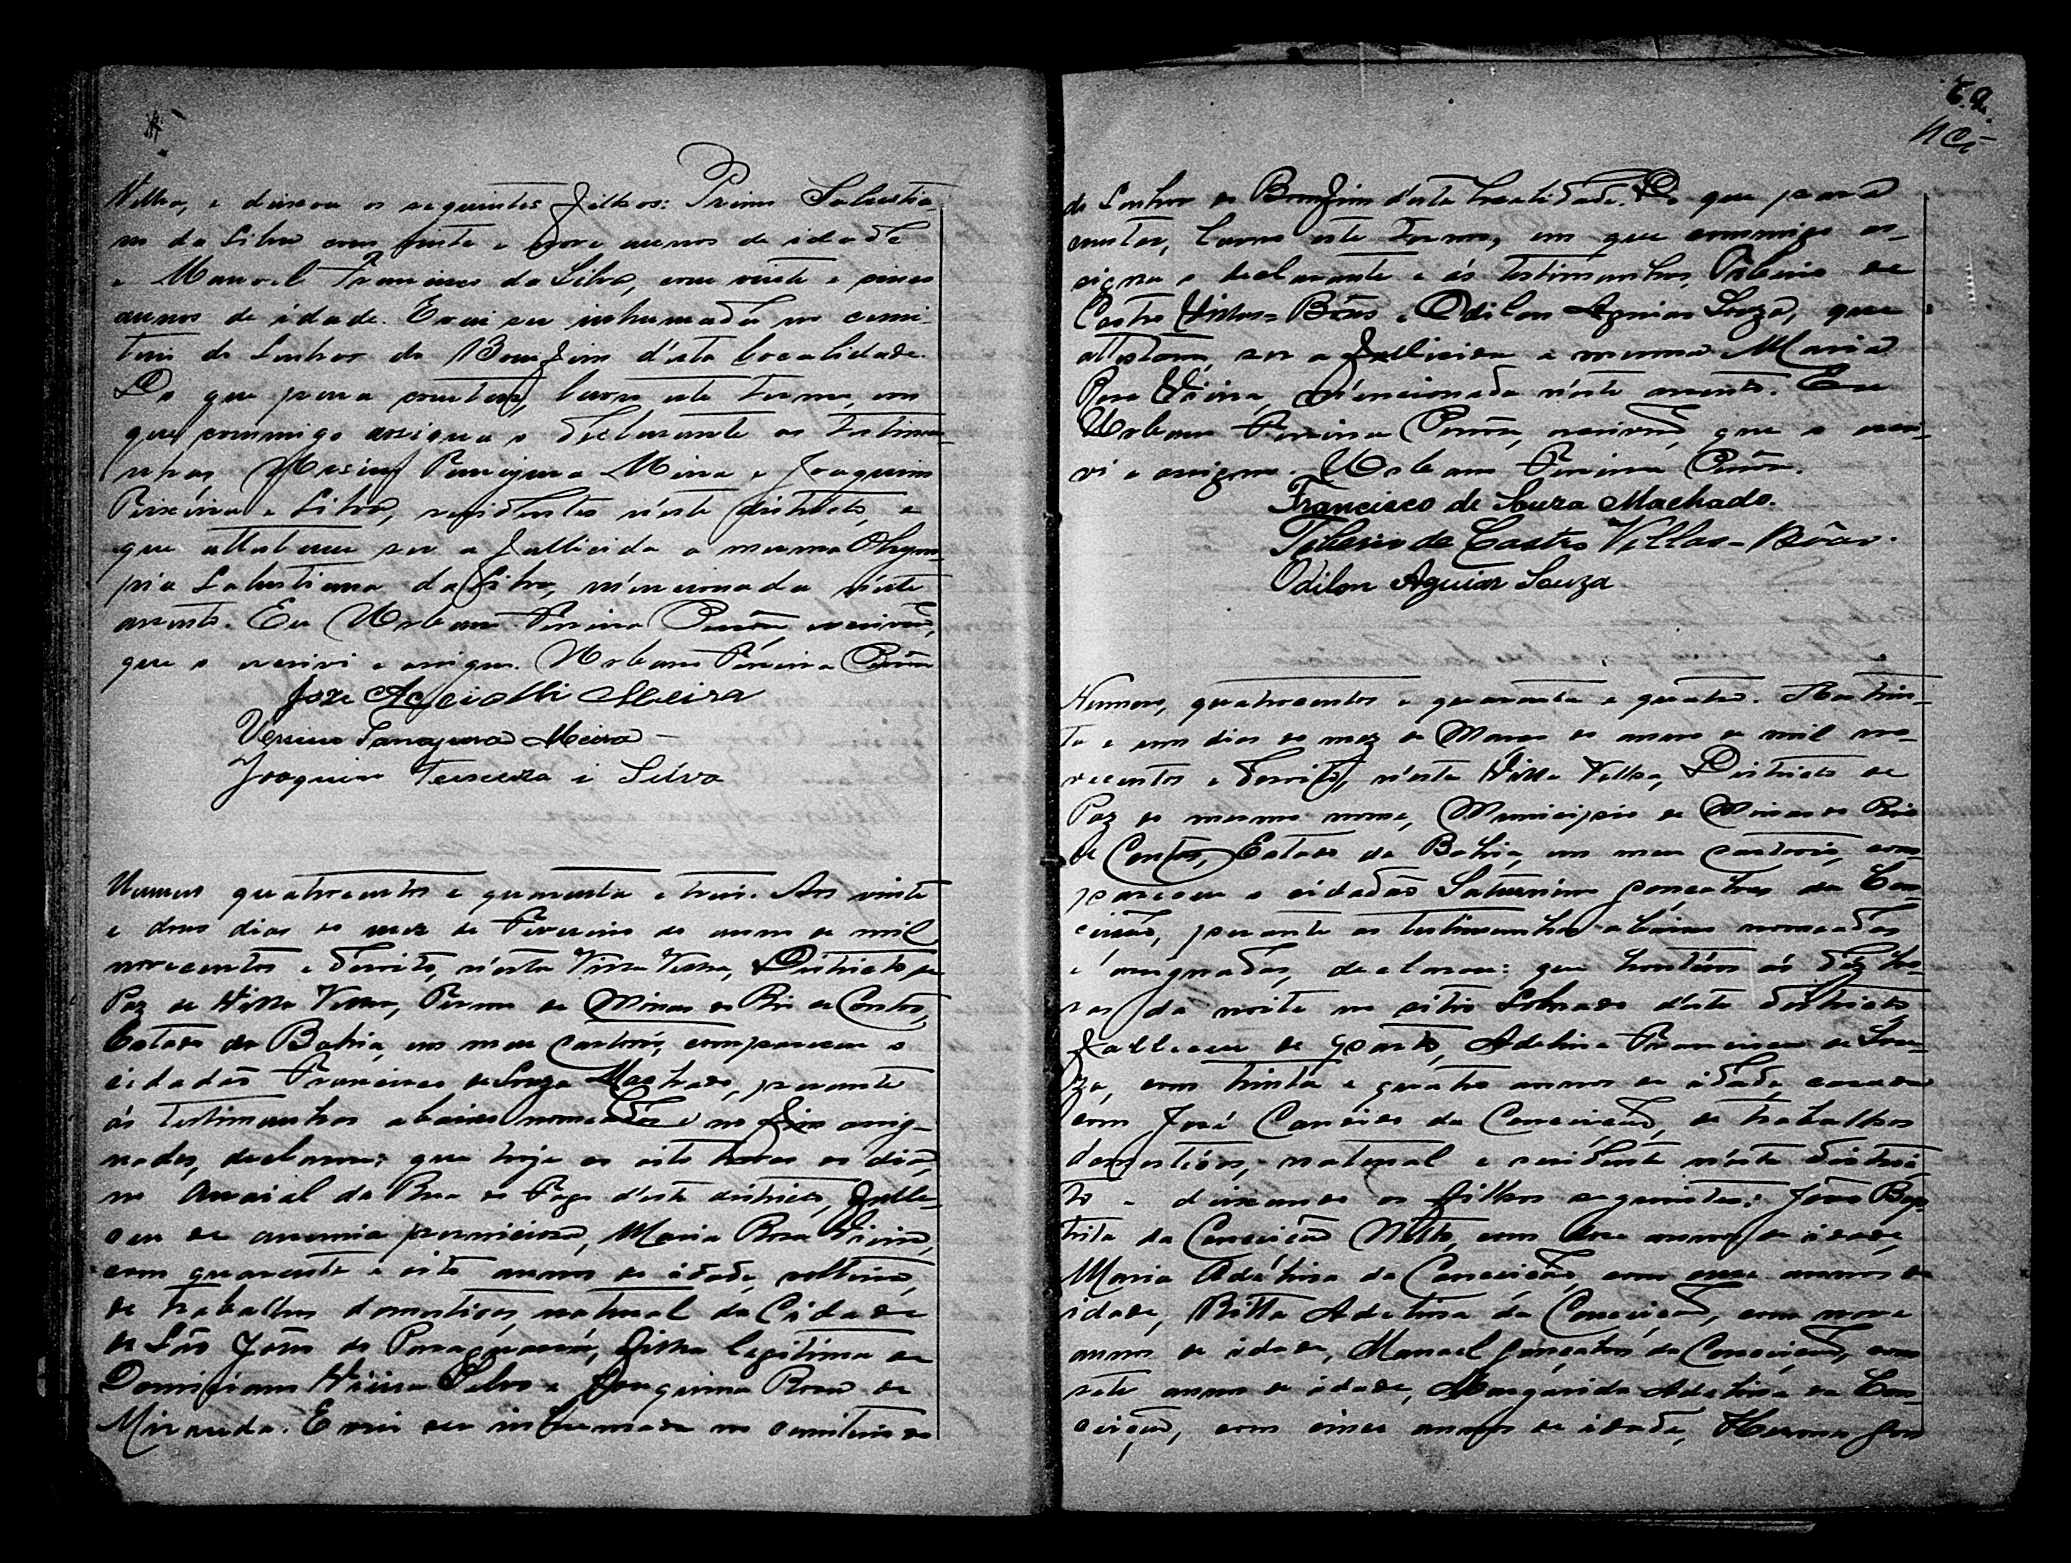 Velha, e deixou os seguintes filhos: Primo Salustia-
no da Silva com vinte e nove annos de idade
e Manoel Francisco da Silva, com vinte e cinco
annos de idade. E vai ser inhumada no cemi-
terio do Senhor do Bomfim d'esta localidade.
Do que para constar, lavro este termo, em
que commigo assigna o declarante as testimu-
nhas Meira e Joaquim
Teixeira e Silva, residentes n'este districto, e
que attestam ser a fallecida a mesma Olym-
pia Salustiana da Silva, mencionada n'este
assento. Eu Urbano Pereira escrivão,
que o escrevi e assigno. Urbano Pereira
José Accioli Meira
Meira
Joaquim Teixeira e Silva
Numero quatrocentos e quarenta e treis. Aos vinte
e dous dias do mez de Fevereiro do anno de mil
novecentos e dezoito, n'esta Villa Velha, Districto de
Paz de Villa Velha, Termo de Minas do Rio de Contas,
Estado da Bahia, em meu cartorio, compareceu o
cidadão Francisco de Souza Machado, perante
ás testimunhas abaixo nomeadas e no fim assig-
nadas, declarou: que hoje as oito horas do dia,
no Arraial da d'este districto, falle-
ceu de anemia perniciosa, Maria Rosa Vieira,
com quarenta e oito annos de idade, solteira,
de trabalhos domesticos, natural da Cidade
de São João do Paraguassú, filha legitima de
Domiciano Vieira e Joaquina Rosa de
Miranda. E vai ser inhumada no cemiterio do
do Senhor do Bomfim d'esta localidade. Do que para
constar, lavro este termo, em que commigo as-
signa o declarante e ás testimunhas, Tiberio de
Castro Villas-Bôas e Odilon Aguiar Souza, que
attestam, ser a fallecida a mesma Maria
Rosa Vieira, mencionada n'este assento. Eu
Urbano Pereira escrivão, que o escre-
vi e assigno. Urbano Pereira
Francisco de Souza Machado.
Tiberio de Castro Villas-Bôas.
Odilon Aguiar Souza
Numero, quatrocentos e quarenta e quatro. Aos trin-
ta e um dias do mez de Março do anno de mil no-
vecentos e dezoito, n'esta Villa Velha, Districto de
Paz do mesmo nome, Municipio de Minas do Rio
de Contas, Estado da Bahia, em meu cartorio, com-
pareceu o cidadão Saturnino Gonçalves da Con-
ceição, perante as testimunhas abaixo nomeadas
e assignadas, declarou: que hontem ás dez ho-
ras da noite no sitio Sobrado d'este districto,
falleceu de parto, Adelina Francisca de Sou-
za, com trinta e quatro annos de idade, casada
com José da Conceição, de trabalhos
domesticos, natural e residente n'este distric-
to e deixando os filhos seguintes: João Bap-
tista da Conceição Netto, com doze annos de idade,
Maria Adelina da Conceição, com onze annos de
idade, Ritta Adelina da Conceição, com nove
annos de idade, Manoel Gonçalves da Conceição, com
sete annos de idade, Margarida Adelina da Con-
ceição, com cinco annos de idade,